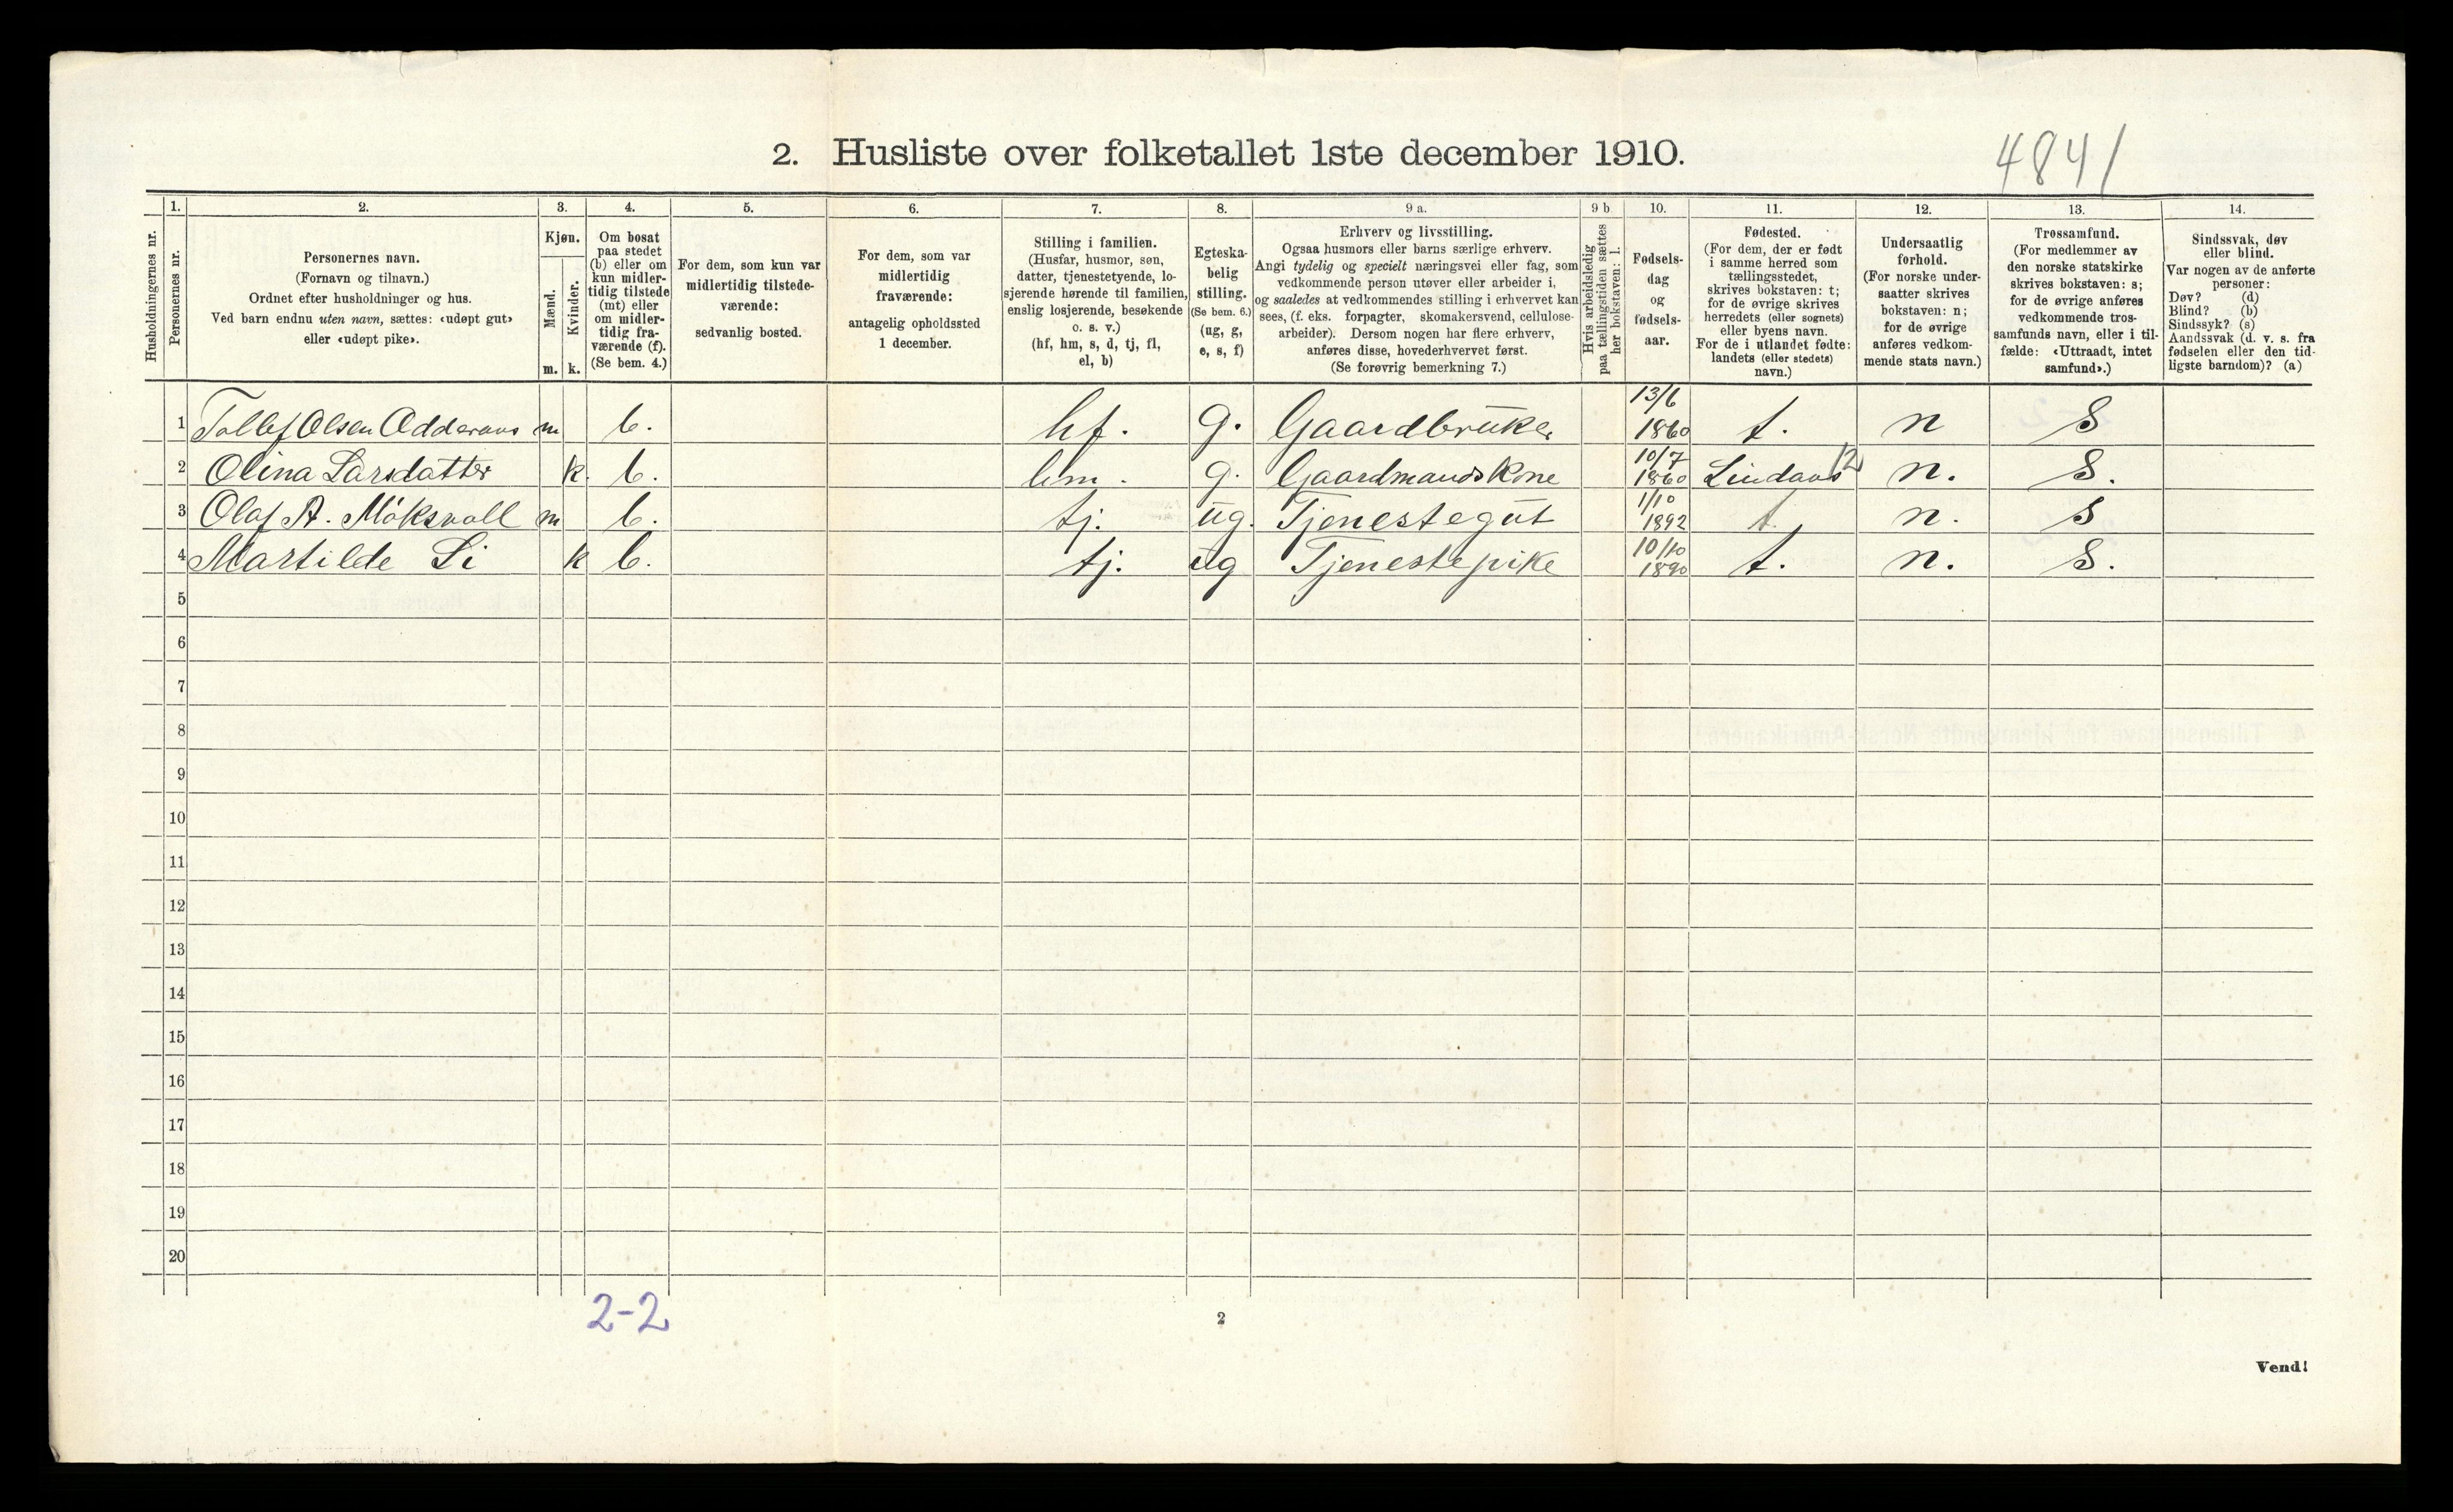 2. Husliste over folketallet 1ste december 1910.
4841
Husholdningernes nr.
1.
Personernes nr.
2.
Personernes navn.
(Fornavn og tilnavn.)
Ordnet efter husholdninger og hus.
Ved barn endnu uten navn, sættes: «udøpt gut»
eller «udøpt pike».
3.
Kjøn.
Mænd.
Kvinder.
m. k.
4.
Om bosat
paa stedet
(b) eller om
kun midler-
tidig tilstede
(mt) eller
om midler-
tidig fra-
værende (f).
(Se bem. 4.)
5.
For dem, som kun var
midlertidig tilstede-
værende:
sedvanlig bosted.
6.
For dem, som var
midlertidig
fraværende:
antagelig opholdssted
1 december.
7.
Stilling i familien.
(Husfar, husmor, søn,
datter, tjenestetyende, lo-
sjerende hørende til familien,
enslig losjerende, besøkende
o. s. v.)
(hf, hm, s, d, tj, fl,
el, b)
8.
Egteska-
belig
stilling.
(Se bem. 6.)
(ug, g,
e, s, f)
9 a.
Erhverv og livsstilling.
Ogsaa husmors eller barns særlige erhverv.
Angi tydelig og specielt næringsvei eller fag, som
vedkommende person utøver eller arbeider i,
og saaledes at vedkommendes stilling i erhvervet kan
sees, (f. eks. forpagter, skomakersvend, cellulose-
arbeider). Dersom nogen har flere erhverv,
anføres disse, hovederhvervet først.
(Se forøvrig bemerkning 7.)
9 b
Hvis arbeidsledig
paa tællingstiden sættes
her bokstaven: l.
10.
Fødsels-
dag
og
fødsels-
aar.
11.
Fødested.
(For dem, der er født
i samme herred som
tællingsstedet,
skrives bokstaven: t;
for de øvrige skrives
herredets (eller sognets)
eller byens navn.
For de i utlandet fødte:
landets (eller stedets)
navn.)
12.
Undersaatlig
forhold.
(For norske under-
saatter skrives
bokstaven: n;
for de øvrige
anføres vedkom-
mende stats navn.)
13.
Trossamfund.
(For medlemmer av
den norske statskirke
skrives bokstaven: s;
for de øvrige anføres
vedkommende tros-
samfunds navn, eller i til-
fælde: «Uttraadt, intet
samfund».)
14.
Sindssvak, døv
eller blind.
Var nogen av de anførte
personer:
Døv? (d)
Blind? (b)
Sindssyk? (s)
Aandssvak (d. v. s. fra
fødselen eller den tid-
ligste barndom)? (a)
1 Tollef Olsen m b. hf. g. Gaardbruker 13/6 1860 t. n S
2 Olina Larsdatter k. b. hm. g. Gaardmands Kone 10/7 1860 Lindaas 12 n. S.
3 Olaf A. m b. tj. ug. Tjenestegut 1/10 1892 t. n. S
4 Martilde Li k b. tj. ug Tjenestepike 10/10 1890 t. n. S.
5
6
7
8
9
10
11
12
13
14
15
16
17
18
19
20
2-2
2
Vend!